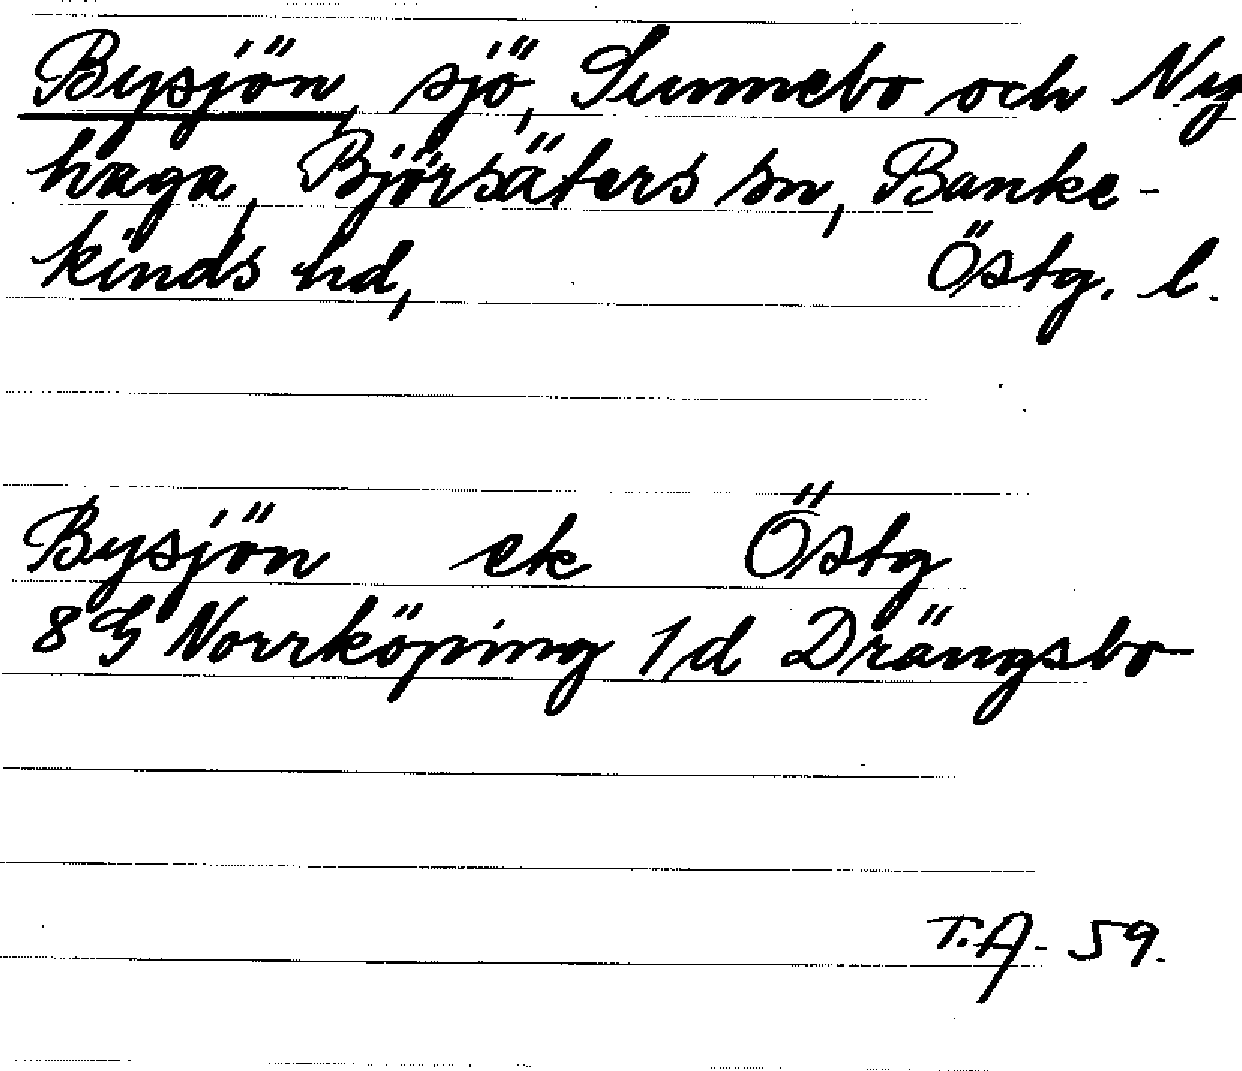 Bysjön, sjö, Sunnebo och Ny
haga, Björsäters sn, Banke-
kinds hd, Östg. l.
Bysjön ek Östg
8 G Norrköping 1d Drängsbo
T.A. 59.